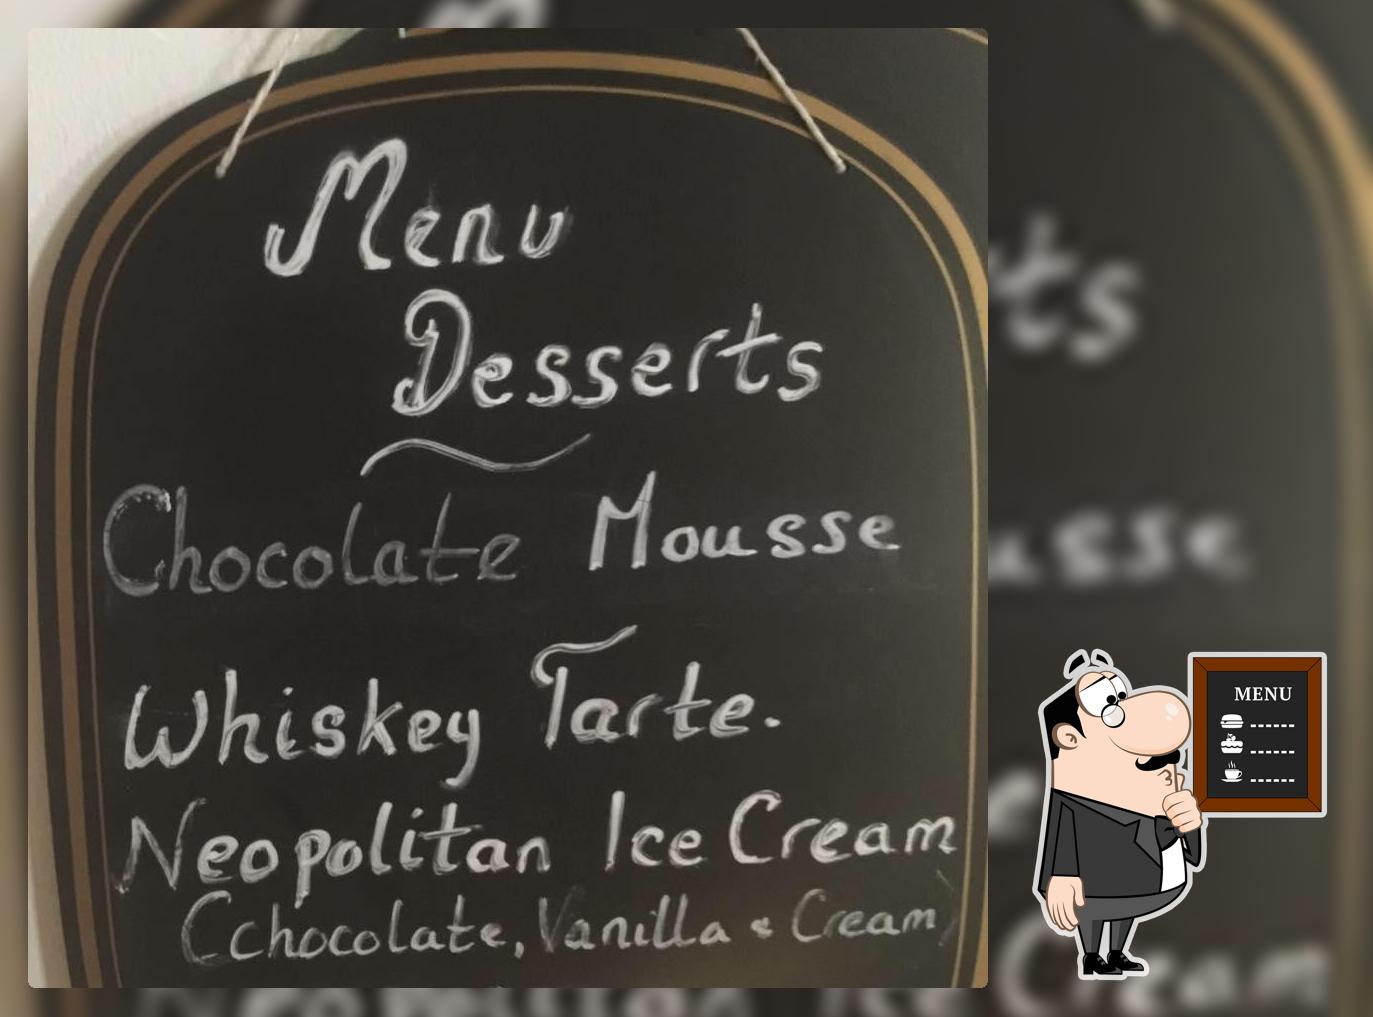 Menu
Desserts
Chocolate Mousse
Whiskey Tarte.
Neopolitan Ice Cream
(chocolate, Vanilla & Cream)
MENU